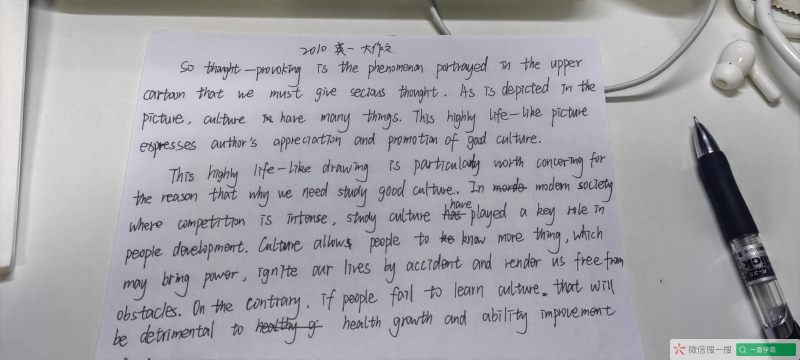 2010 英一 大作文
So thought-provoking is the phenomenon portrayed in the upper
cartoon that we must give secious thought. As is depicted in the
picture, culture have many things. This highly life-like picture
expresses author's appreciation and promotion of good culture.
This highly life-like drawing is particularly worth concering for
the reason that why we need study good culture. In modern society
where competition is intense, study culture have played a key role in
people development. Culture allows people to know more thing, which
may bring power, ignite our lives by accident and render us free from
obstacles. On the contrary, if people fail to learn culture. that will
be detrimental to health growth and ability improvement
微信搜一搜
一直学霸